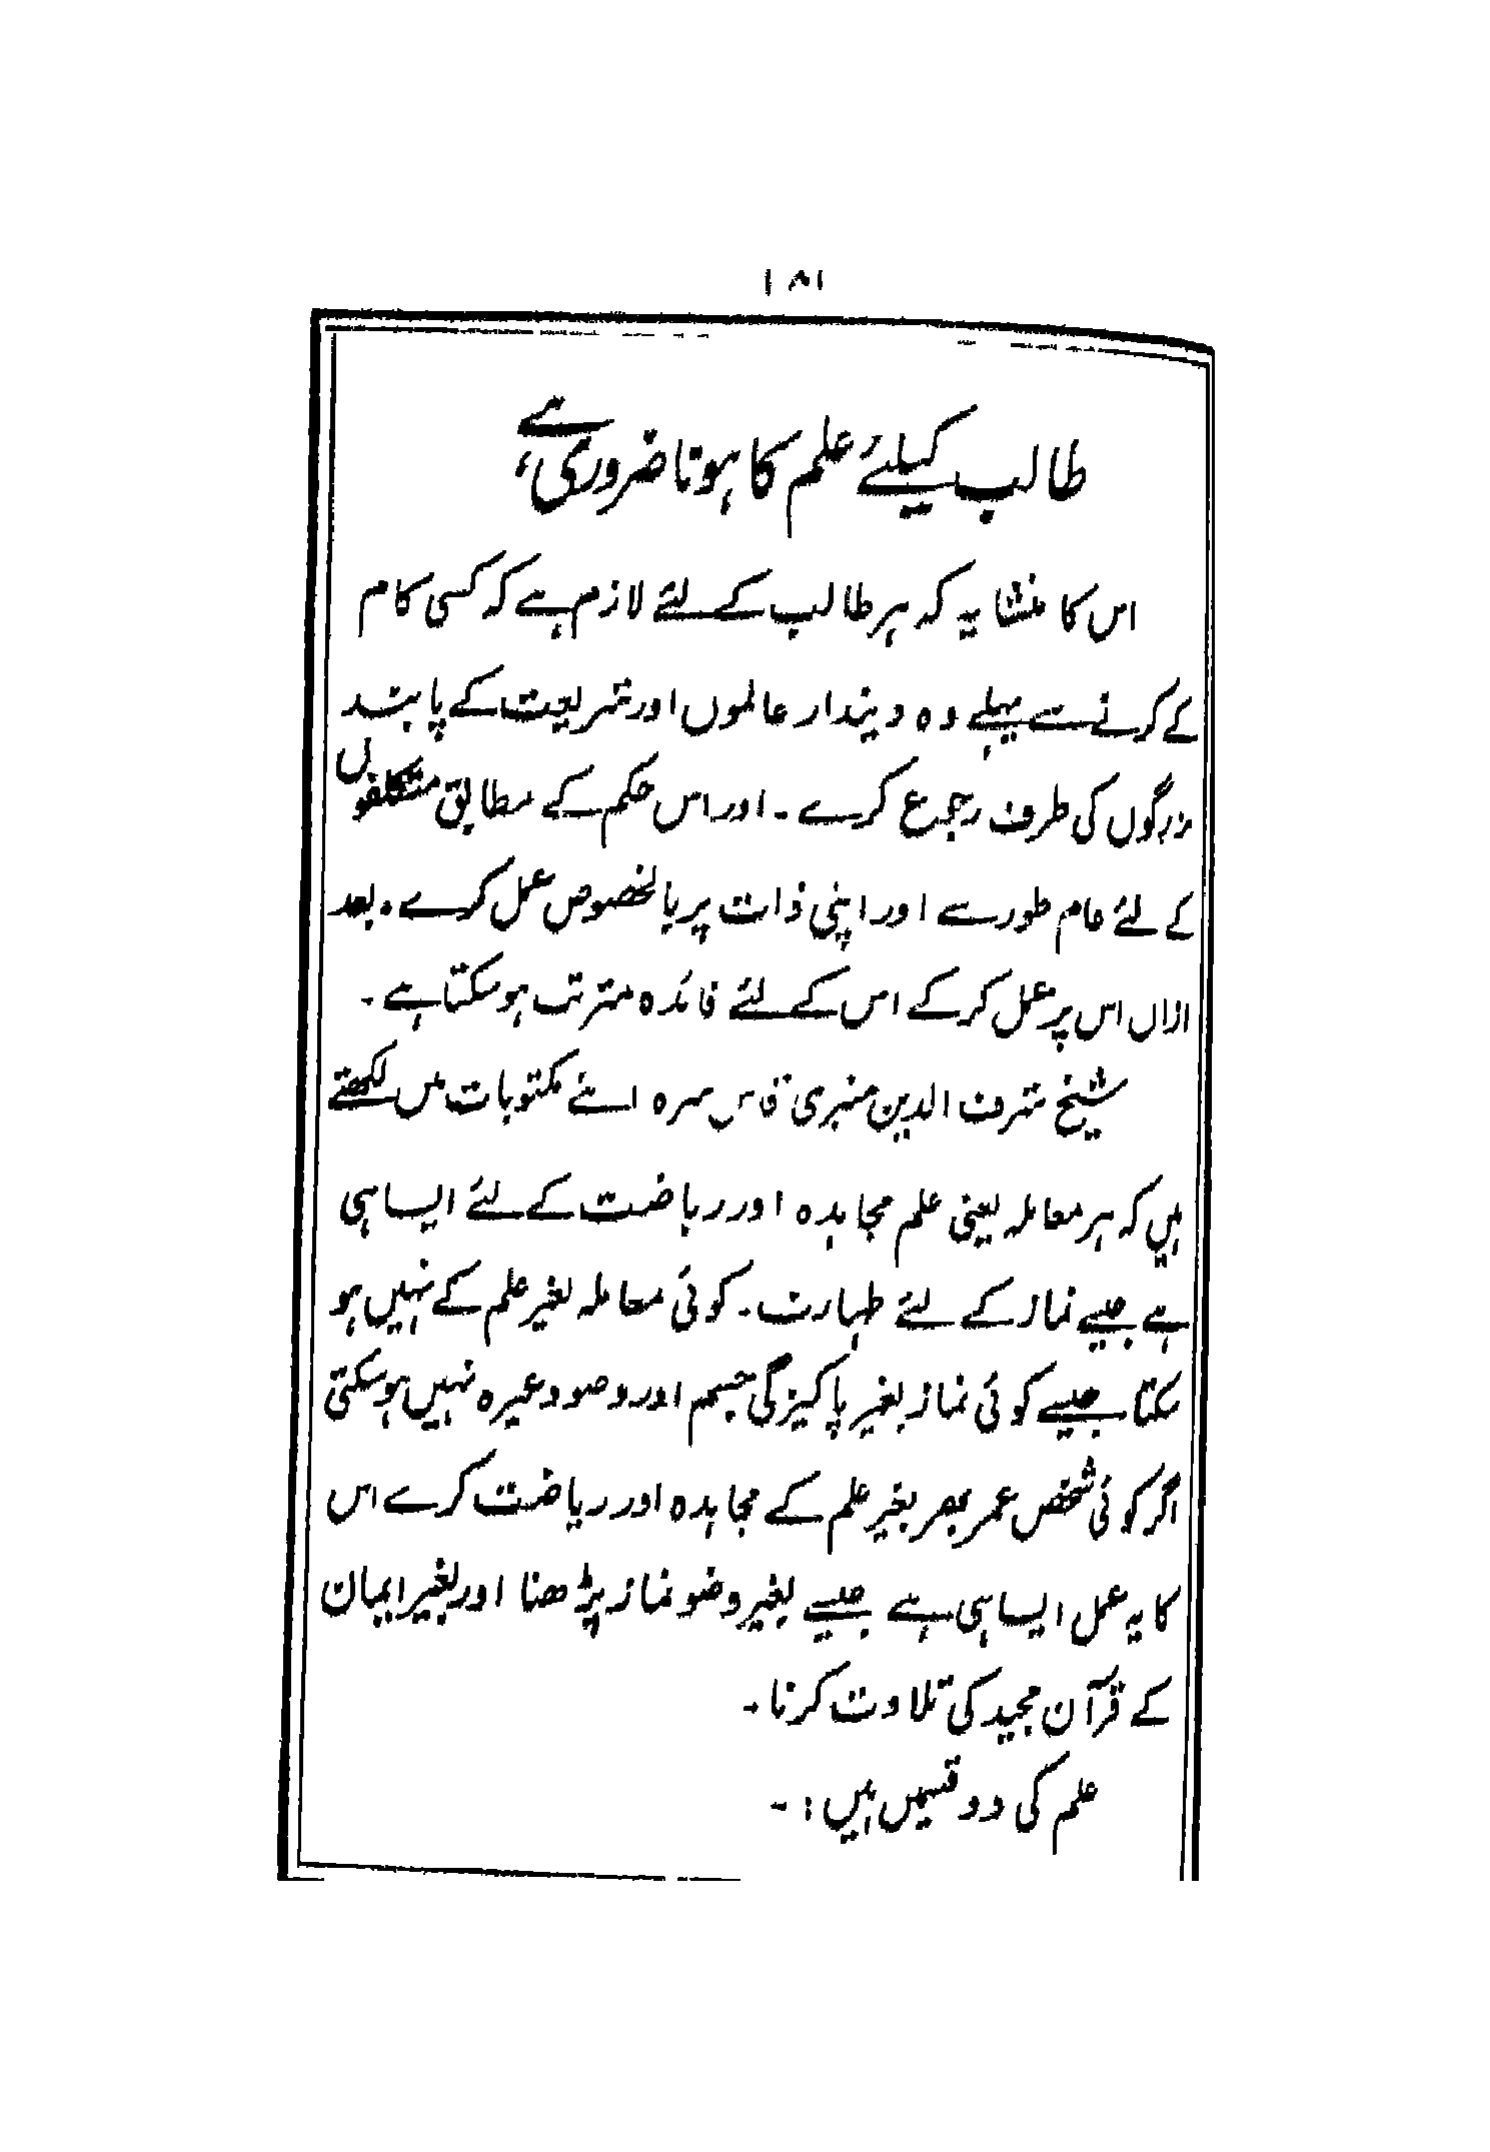 ۱۸۱
طالب کیلئے علم کا ہونا ضروری ہے
اس کا منشا یہ کہ ہر طالب کے لئے لازم ہے کہ کسی کام
کے کرنے سے پہلے وہ دیندار عالموں اور شریعت کے پابند
بزرگوں کی طرف رجوع کرے ۔ اور اس حکم کے مطابق متکلفوں
کے لئے عام طور سے اور اپنی ذات پر بالخصوص عمل کرے ۔ بعد
ازاں اس پر عمل کر کے اس کے لئے فائدہ مترتب ہو سکتا ہے ۔
شیخ شرف الدین منیری قدس سرہ اپنے مکتوبات میں لکھتے
ہیں کہ ہر معاملہ یعنی علم مجاہدہ اور ریاضت کے لئے ایسا ہی
ہے جیسے نماز کے لئے طہارت ۔ کوئی معاملہ بغیر علم کے نہیں ہو
سکتا جیسے کوئی نماز بغیر پاکیزگی جسم اور وضو وغیرہ نہیں ہو سکتی
اگر کوئی شخص عمر بھر بغیر علم کے مجاہدہ اور ریاضت کرے اس
کا یہ عمل ایسا ہی ہے جیسے بغیر وضو نماز پڑھنا اور بغیر ایمان
کے قرآن مجید کی تلاوت کرنا ۔
علم کی دو قسمیں ہیں : ۔